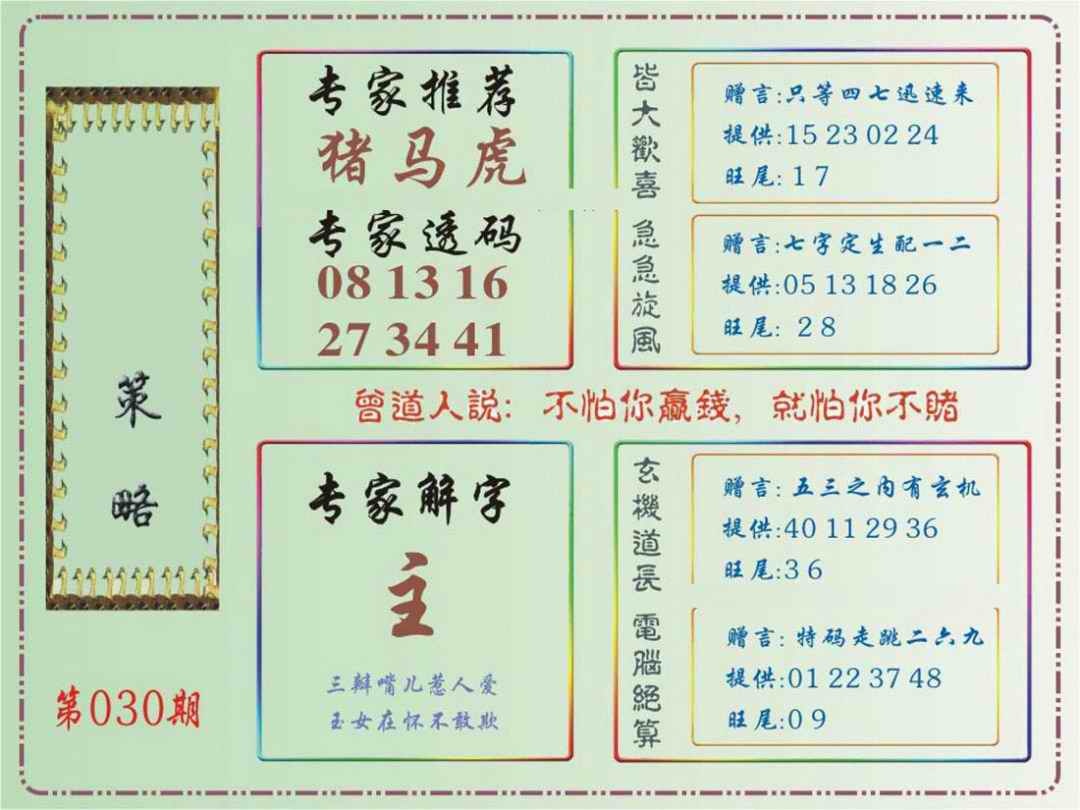 策略
第030期
专家推荐
猪马虎
专家透码
08 13 16
27 34 41
皆大歡喜
赠言:只等四七迅速来
提供:15 23 02 24
旺尾: 1 7
急急旋风
赠言:七字定生配一二
提供:05 13 18 26
旺尾: 2 8
曾道人説: 不怕你贏錢, 就怕你不賭
专家解字
主
三辩嘴儿惹人爱
玉女在怀不敢欺
玄機道長
赠言: 五三之内有玄机
提供:40 11 29 36
旺尾:3 6
電腦絕算
赠言: 特码走跳二六九
提供:01 22 37 48
旺尾:0 9